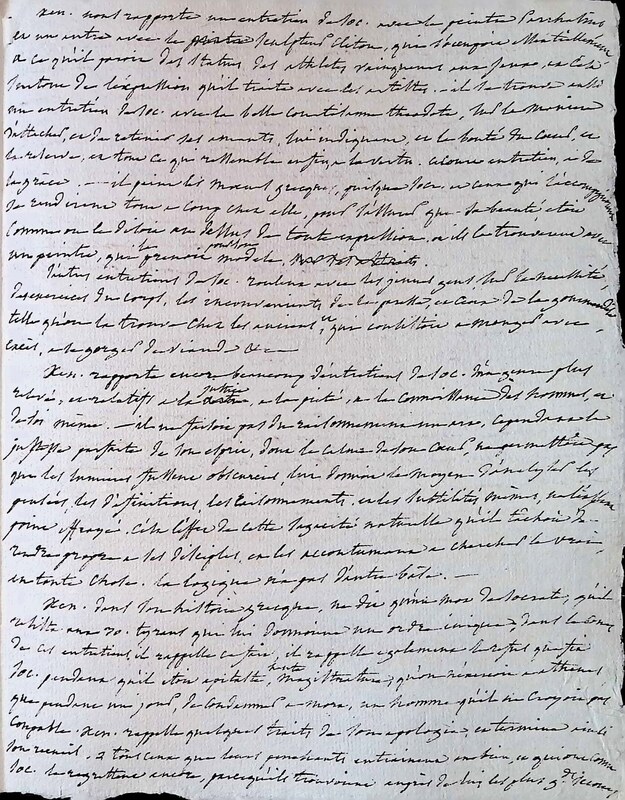 Xen. nous rapporte un entretien de Soc. avec le peintre Parrhasius
et un autre avec le sculpteur Cliton, qui s'occupoit
a ce qu'il paroit des statues des athletes vainqueurs aux jeux, et c'est
surtout de l'expression qu'il traite avec ces artistes. — il se trouve aussi
un entretien de Soc. avec la belle courtisanne theodote, sur la maniere
d'attacher, et de retenir ses amants, lui indiquant, et la bonté du coeur, et
la reserve, et tout ce qui ressemble enfin a la vertu. ce entretien, a de
la grace. — il peint les moeurs grecques, puisque Soc. et ceux qui l'accompagnoient
se rendirent tout a coup chez elle, pour s'assurer que sa beauté etoit
comme on le disoit au dessus de toute expression, et ils la trouverent avec
un peintre, qui la prenoit pour son modele.
D'autres entretiens de Soc. roulent avec les jeunes gens sur la necessité
d'exercices du corps, les inconvenients de la paresse, et ceux de la gourmandise
telle qu'on la trouve chez les anciens, et qui consistoit a manger avec
excès, a se gorger de viande &c —
Xen. rapporte encore beaucoup d'entretiens de Soc. d'un genre plus
relevé, et relatifs a la justice, a la pieté, a la connoissance des hommes, et
de soi même. — il ne faisoit pas du raisonnement un art, cependant la
justesse parfaite de son esprit, dont le calme de son coeur, ne permettoit pas
que les lumieres fussent obscurcies, lui donnoit le moyen d'analyser les
pensées, les definitions, les raisonnements, et les subtilités mêmes, ne l'avoient
point effrayé. C'est l'effet de cette sagacité naturelle qu'il tachoit de
rendre propre a ses disciples, en les accoutumant a chercher le vrai
en toute chose. la logique n'a pas d'autre base. —
Xen. dans son histoire grecque, ne dit qu'un mot de Socrate, qu'il
resista aux 30. tyrans qui lui donnoient un ordre inique, dans le cours
de ces entretiens, il rappelle ce fait, il rappelle egalement le refus que fit
Soc. pendant qu'il etoit epistate, haute magistrature, qu'on n'exercoit a athenes
que pendant un jour, de condamner a mort, un homme qu'il ne croyoit pas
coupable. Xen. rappelle quelques traits de son apologie, et termine ici
son recueil. — tous ceux que leurs penchants entrainent au bien, et qui ont connu
Soc. le regrettent encore, parcequ'ils trouvoient aupres de lui, les plus gds. secours